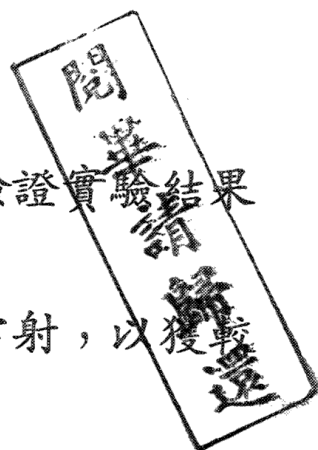 閱畢請歸還
驗證實驗結果
射，以獲較